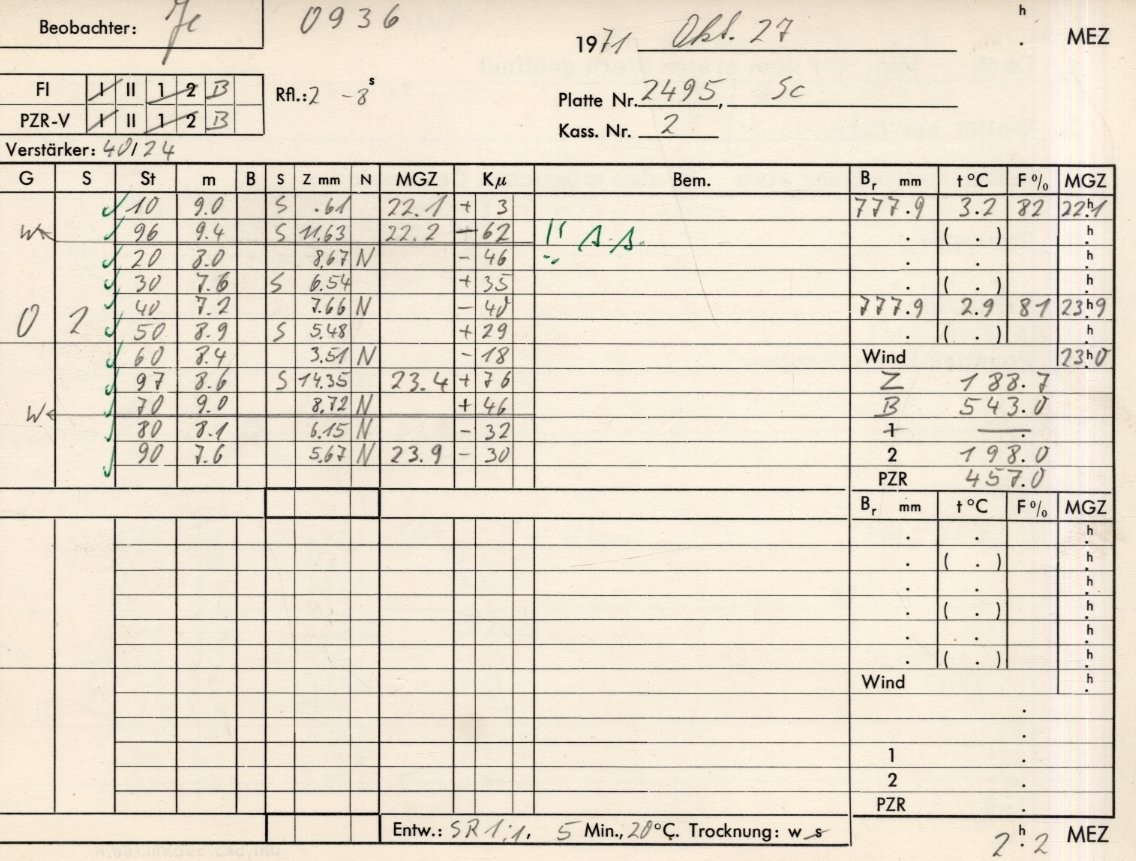 Beobachter: Je 0936
h
1971 Okt. 27 . MEZ
FI I II 1 2 B Rfl.: 2 -8 s
Platte Nr. 2495, Sc
PZR-V I II 1 2 B
Kass. Nr. 2
Verstärker: 40/24
G S St m B S Z mm N MGZ Kμ Bem. Br mm t°C F% MGZ
✓ 10 9.0 S .61 22.1 + 3 777.9 3.2 82 22h1
W ✓ 96 9.4 S 11.63 22.2 - 62 !! . ( . ) h.
✓ 20 8.0 8.67 N - 46 . . h.
✓ 30 7.6 S 6.54 + 35 . ( . ) h.
✓ 40 7.2 7.66 N - 40 777.9 2.9 81 23h9
0 2 ✓ 50 8.9 S 5.48 + 29 . ( . ) h.
✓ 60 8.4 3.51 N - 18 Wind 23h0
✓ 97 8.6 S 14.35 23.4 + 76 Z 188.7
W ✓ 70 9.0 8.72 N + 46 B 543.0
✓ 80 8.1 6.15 N - 32 1 .
✓ 90 7.6 5.67 N 23.9 - 30 2 198.0
✓ PZR 457.0
Br mm t°C F% MGZ
. . h.
. ( . ) h.
. . h.
. ( . ) h.
. . h.
. ( . ) h.
Wind h.
.
.
1 .
2 .
PZR .
Entw.: SR 1:1, 5 Min., 20 °C. Trocknung: w s
2 h. 2 MEZ